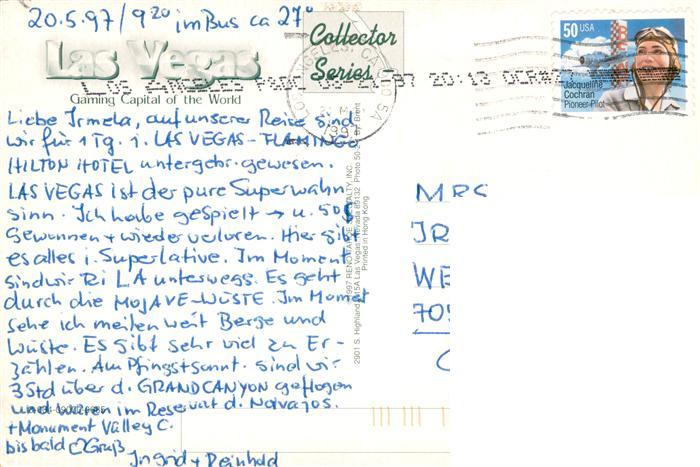 20.5.97/9 20 im Bus ca 27°
Las Vegas
Gaming Capital of the World
Collector
Series
50 USA
Jacqueline
Cochran
Pioneer Pilot
LOS ANGELES 20:13 OCR#
Liebe Irmela, auf unserer Reise sind
wir für 1 Tg. i. LAS VEGAS-FLAMINGO
HILTON HOTEL untergebr. gewesen.
LAS VEGAS ist der pure Superwahn
sinn. Ich habe gespielt → u. 50$
gewonnen + wieder verloren. Hier gibt
es alles i. Superlative. Im Moment
sind wir Ri LA unterwegs. Es geht
durch die MOJAVE-WÜSTE. Im Moment
sehe ich meilen weit Berge und
Wüste. Es gibt sehr viel zu Er-
zählen. Am Pfingstsonnt. sind wir
3 Std über d. GRANDCANYON geflogen
und waren im Reservat d. Navajos.
+ Monument Valley C.
bis bald Gruß
Ingrid + Reinhold
MRS
IR
WE
705
2901 S. Highland #15A Las Vegas, Nevada 89132 Photo 50- By: Brent
Printed in Hong Kong